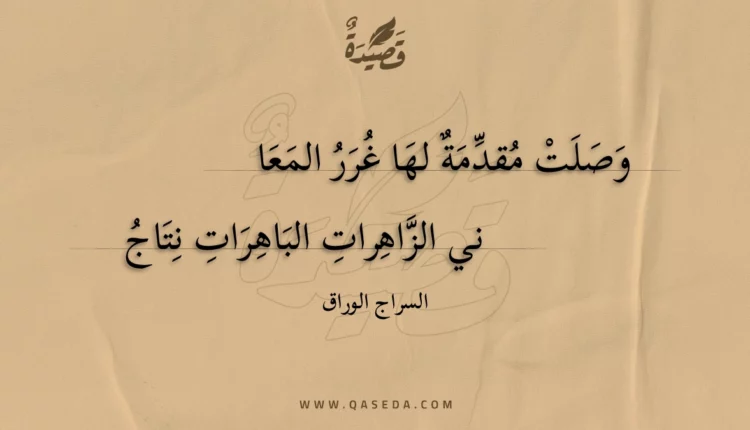 قَصِيْدَةٌ
وَصَلَتْ مُقدِّمَةٌ لهَا غُرَرُ المَعَا
ني الزَّاهِراتِ البَاهِرَاتِ نِتَاجُ
السراج الوراق
WWW.QASEDA.COM